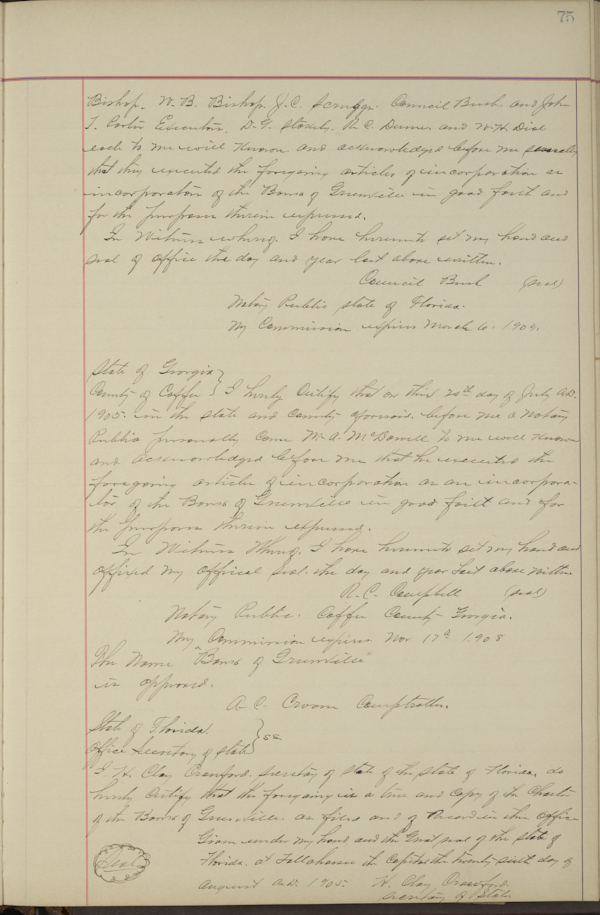 75
Bishop. W. B. Bishop. J. C. Scruggs. Council Bush. and John
T. Porter Executor. D. G. Stokely. A. C. Denner. and W. H. Dial
each to me well known and acknowledged before me severally
that they executed the foregoing articles of incorporation as
incorporators of the Bank of Greenville in good faith and
for the purposes therein expressed.
In Witness whereof. I have hereunto set my hand and
seal of office the day and year last above written.
Council Bush (seal)
Notary Public State of Florida.
My Commission expires March 6. 1909.
State of Georgia
County of Coffee } I hereby Certify that on this 20th day of July A.D.
1905. in the state and County aforesaid. before me a Notary
Public personally came M. A. McDowell to me well known
and acknowledged before me that he executed the
foregoing article of incorporation as an incorpora-
tor of the Bank of Greenville in good faith and for
the purposes therein expressed.
In Witness Whereof. I have hereunto set my hand and
affixed my official seal. the day and year last above written
A. C. Campbell (seal)
Notary Public. Coffee County Georgia.
My Commission expires Nov 17th 1908
The Name "Bank of Greenville"
is approved.
A. C. Croom Comptroller.
State of Florida.
Office Secretary of State } ss
I H. Clay Crawford. Secretary of State of the State of Florida. do
hereby Certify that the foregoing is a true and Copy of the Charter
of the Bank of Greenville. as filed and of Record in this office
Given under my hand and the Great seal of the State of
(Seal) Florida. at Tallahassee the Capital the twenty sixth day of
August A.D. 1905. H. Clay Crawford.
Secretary of State